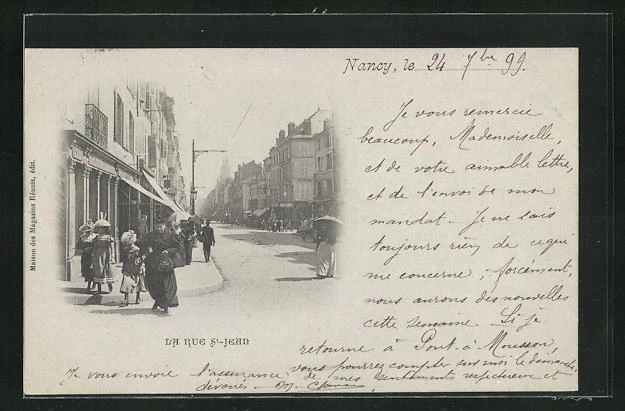 Nancy, le 24 7bre 99.
Je vous remercie
beaucoup, Mademoiselle,
et de votre aimable lettre,
et de l'envoi de mon
mandat. Je ne sais
toujours rien de ce qui
me concerne, forcément,
nous aurons des nouvelles
cette semaine. Si je
retourne à Pont-à-Mousson,
vous pourrez compter sur moi le dimanche
Je vous envoie l'assurance de mes sentiments respectueux et
dévoués
Maison des Magasins Réunis, édit.
LA RUE St-JEAN